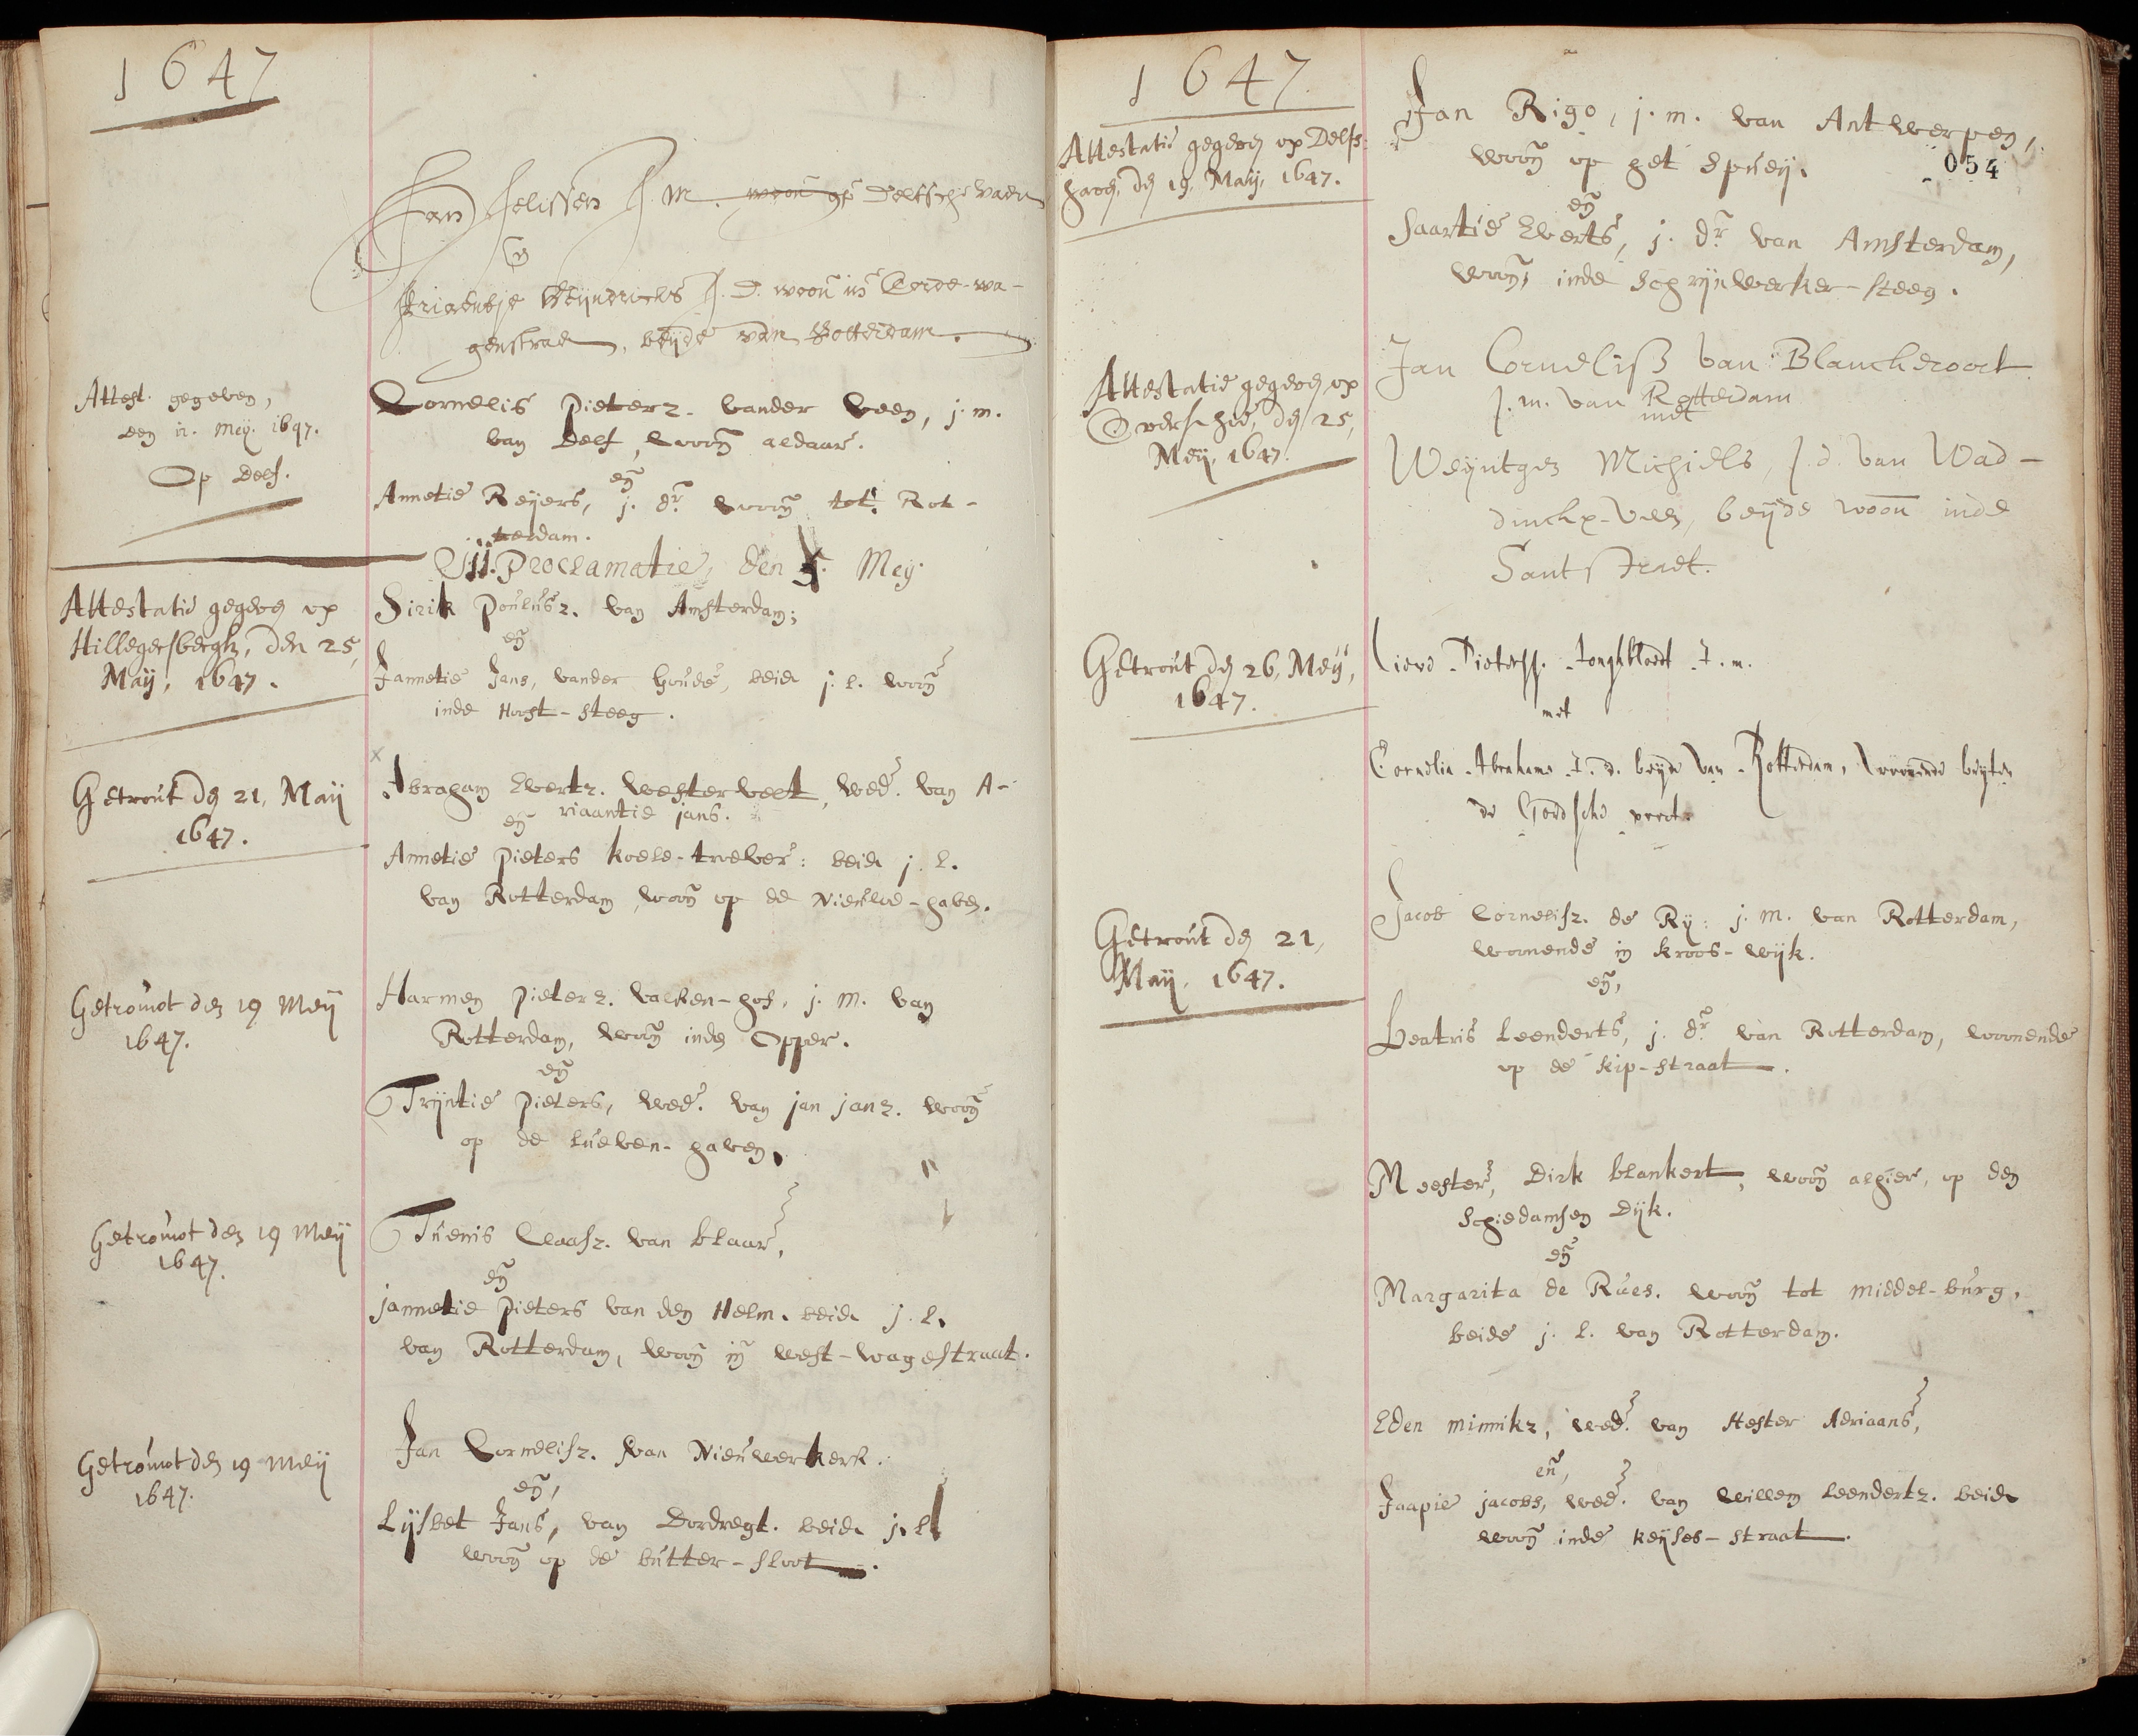 1647
Jan Jelissen J. M. woon op Delfsche vaert
en
Ariaentje Heyndricks J. D. woon in Corde-wa-
genstraet, beyde van Rotterdam.
Attest. gegeven,
den 12. Meij. 1647.
Op Delf.
Cornelis Pieterz. vander Veen, j. m.
van Delf, woon aldaar.
en
Annetie Reijers, j. dr. woon tot Rot-
terdam.
II. Proclamatie, den 5. Mey.
Attestatie gegeven op
Hillegersbergh, den 25,
Maÿ, 1647.
Dirik Poulusz. van Amsterdam;
en
Jannetie Jans, vander Goude, beide j. l. woon
inde Hoost-steeg.
Getrout den 21, Maÿ
1647.
Abraham Evertz. Westerveet, wed. van A-
riaantie jans.
en
Annetie Pieters koele-troever: beide j. l.
van Rotterdam, woon op de Nieuwe-haven.
Getrouwt den 19 Meÿ
1647.
Harmen Pieterz. Valken-hof, j. m. van
Rotterdam, woon inden Opper.
en
Trÿntie Pieters, wed. van jan janz. woon
op de Lueven-haven.
Getrouwt den 19 Meÿ
1647.
Tuenis Claasz. van Blaar,
en
jannetie Pieters van den Helm. beide j. l.
van Rotterdam, woon in West-wagestraat.
Getrouwt den 19 Meÿ
1647.
Jan Cornelisz. van Nieuwerkerk.
en,
Lÿsbet Jans, van Dordregt. beide j. l.
woon op de butter-sloot.
1647.
Attestatie gegeven op Delfs-
haven, den 19, Maÿ, 1647.
Jan Rigo, j. m. van Antwerpen,
woon op het Spueÿ.
054
en
Saartie Everts, j. dr. van Amsterdam,
woon, inde Schrÿnwerker-steeg.
Attestatie gegeven op
Overschie, den 25,
Meÿ, 1647.
Jan Corneliss van Blanckeroort
J. m. van Rotterdam
met
Weÿntgen Michiels, J. d. van Wad-
dincx-veen, beÿde woon inde
Santstraet.
Getrout den 26, Meÿ,
1647.
Lieve Pieterss. Jonghbloedt J. m.
met
Cornelia Abrahams J. d. beyde van Rotterdam, woonende buyten
de Goudsche poort.
Getrout den 21,
Maÿ, 1647.
Jacob Cornelisz. de Rÿ: j. m. van Rotterdam,
woonende in Kroos-wÿk.
en,
Beatris Leenderts, j. dr. van Rotterdam, woonende
op de kip-straat.
Meester, Dirk Blankert, woon alhier, op den
Schiedamsen Dÿk.
en
Margarita de Rues. woon tot middel-burg,
beide j. l. van Rotterdam.
Eden minnikz, wed. van Hester Adriaans,
en,
Jaapie jacobs, wed. van Willem Leendertz. beide
woon inde keÿses-straat.